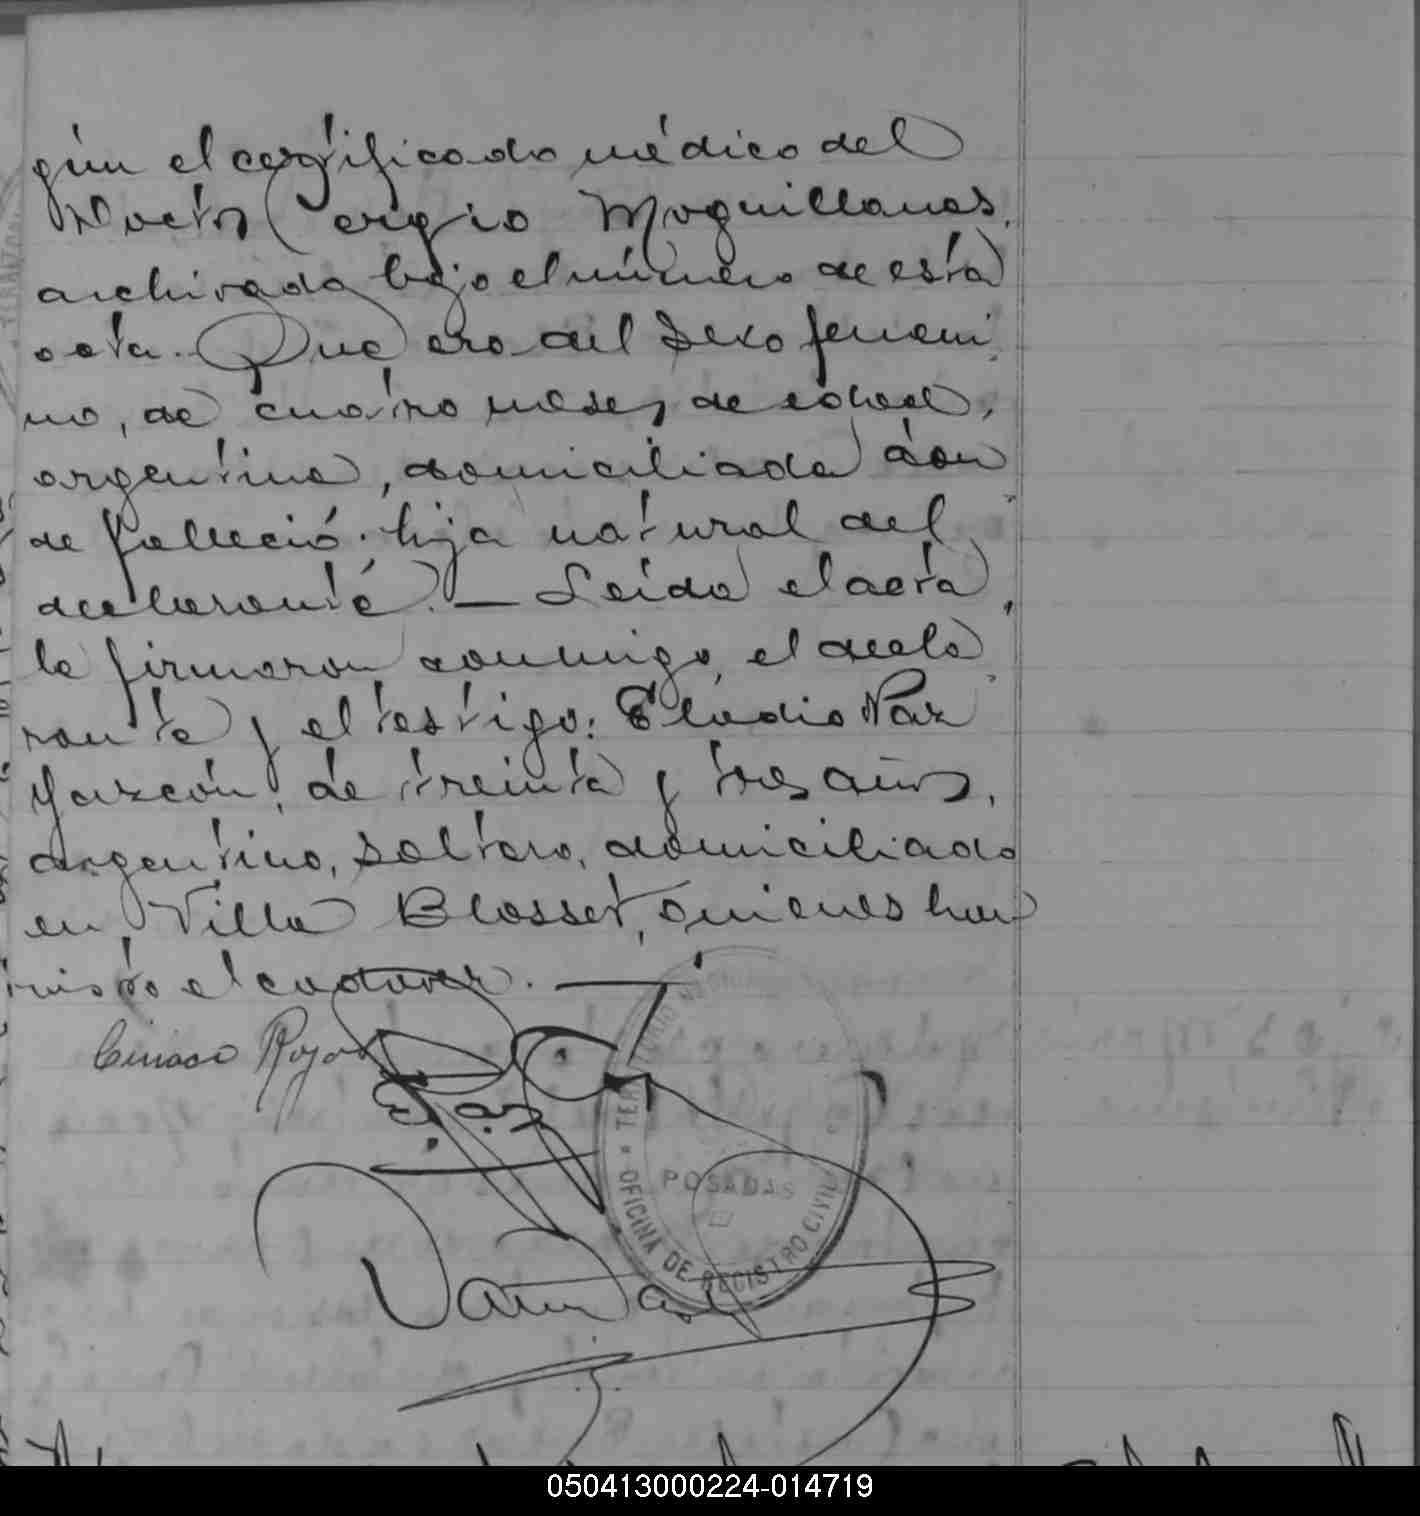 gún el certificado médico del
Doctor Sergio Moguillanes.
archivado bajo el número de esta
acta. Que era del sexo femeni
no, de cuatro meses de edad,
argentina, domiciliada don
de falleció. hija natural del
declarante. — Leída el acta,
la firmaron conmigo, el decla
rante y el testigo: Eladio Paz
Garzón, de treinta y tres años,
argentino, soltero, domiciliado
en Villa Blosset, quienes han
visto el cadaver. —
Ciriaco Rojas
E. Paz
POSADAS
OFICINA DE REGISTRO CIVIL
050413000224-014719